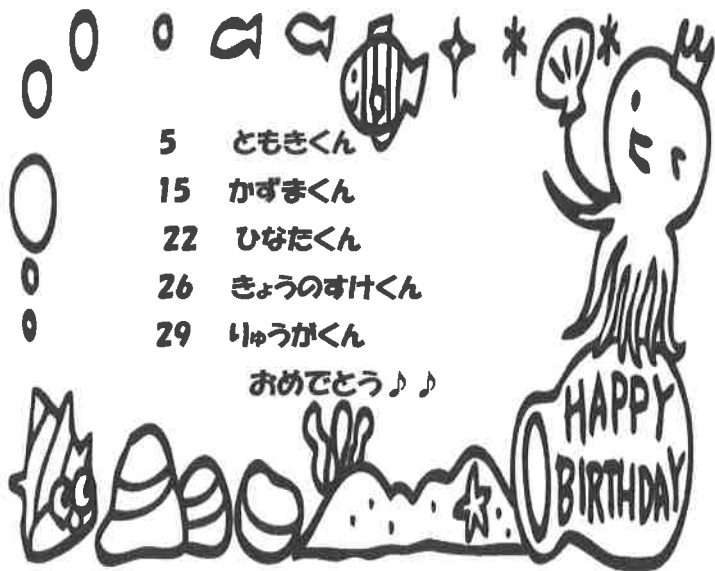 5 ともきくん
15 かずまくん
22 ひなたくん
26 きょうのすけくん
29 りゅうがくん
おめでとう♪♪
HAPPY
BIRTHDAY